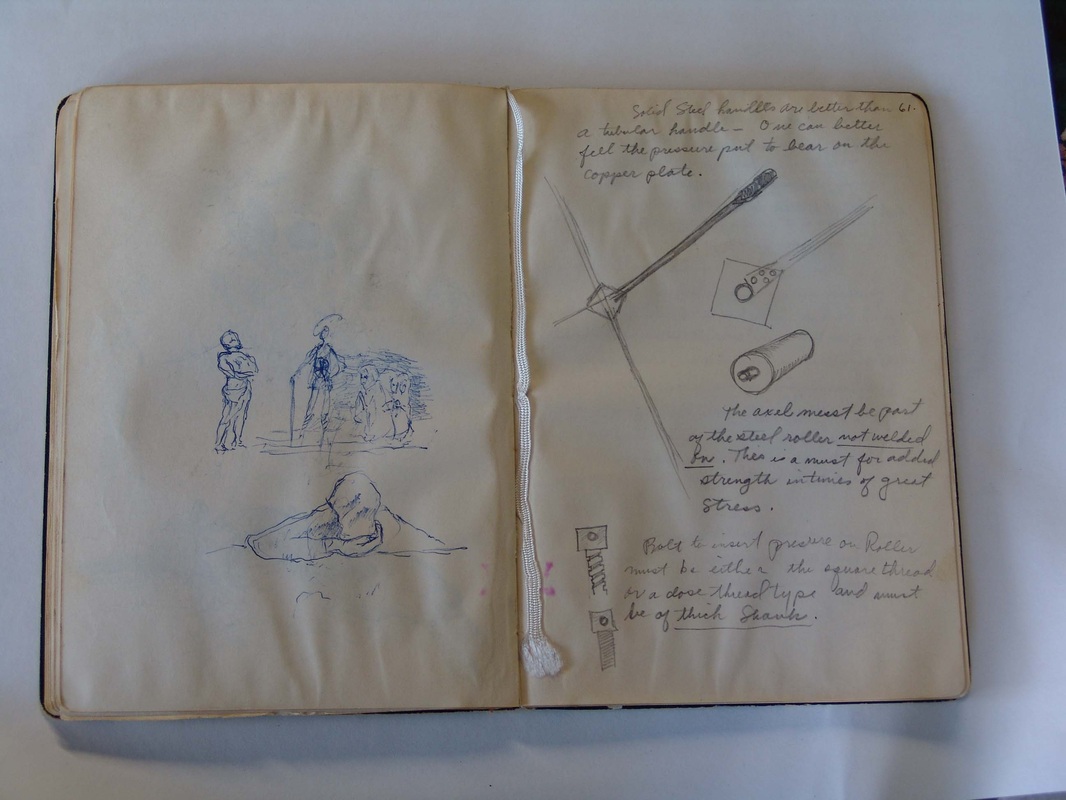 Solid Steel handles are better than 61.
a tubular handle — One can better
fell the pressure put to bear on the
copper plate.
The axel must be part
of the steel roller not welded
on. This is a must for added
strength in times of great
stress.
Bolt to insert pressure on Roller
must be either the square thread
or a close thread type and must
be of thick Shank.